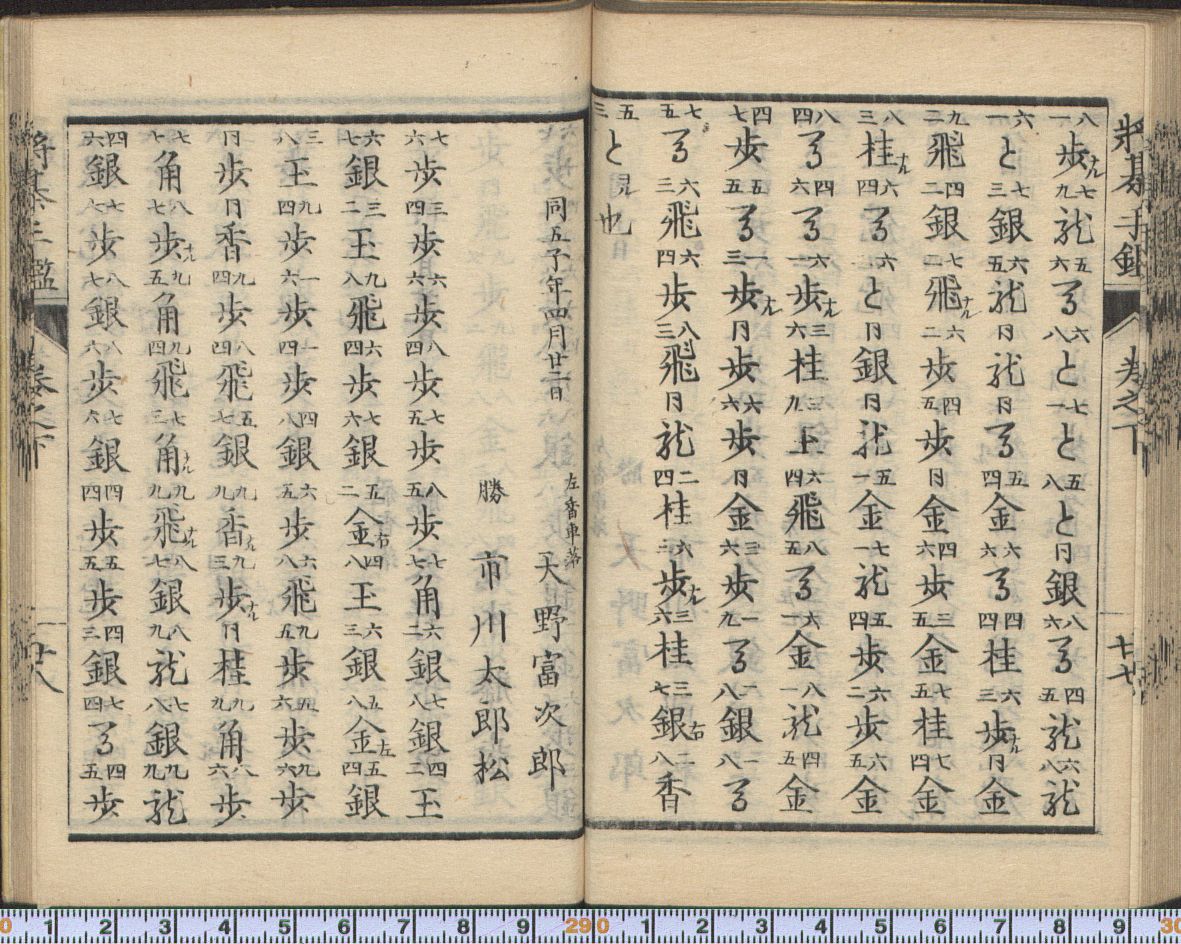 将棊手鑑
巻之下
七七
八一歩ナル七九龍五六馬六八と七一と五八と同銀八六馬四五龍六八龍
六一と七三銀六五龍同龍同馬五四金六六馬四四桂六三歩ナル同金
九二飛四二銀七二飛ナル六二歩四五歩同金四六歩三五金七五桂七四金
八三桂ナル六四馬六三と同銀同龍五一金七一龍五四歩六二歩六五金
八四馬四六馬六一歩ナル三六桂三九玉六四飛八五馬六一金八一龍四五金
四七歩五五馬一三歩ナル同歩六六歩同金三六歩一九馬二八銀一八馬
七五馬六三飛六四歩八三飛同龍二四桂六三歩ナル三六桂三七銀右二八香
五三と見也
同五子年四月廿二日
左香車落 天野富次郎
勝 市川太郎松
七六歩三四歩六六歩八四歩七五歩八五歩七七角六二銀七八銀四二玉
六七銀三二玉九八飛六四歩七六銀五二金右四八玉六三銀五八金左五四銀
三八玉九四歩一六歩一四歩四八銀六五歩六八飛九五歩五六歩九六歩
同歩同香九四歩八四飛五七銀九九香ナル九三歩ナル同桂九九角八六歩
七七角八七歩ナル九五角九四飛七三角ナル九九飛ナル八七銀八九龍七八銀九九龍
四六銀七七歩八七銀八六歩七六銀四四歩五五歩四三銀七四馬四五歩
将棊手鑑
巻之下
廿八